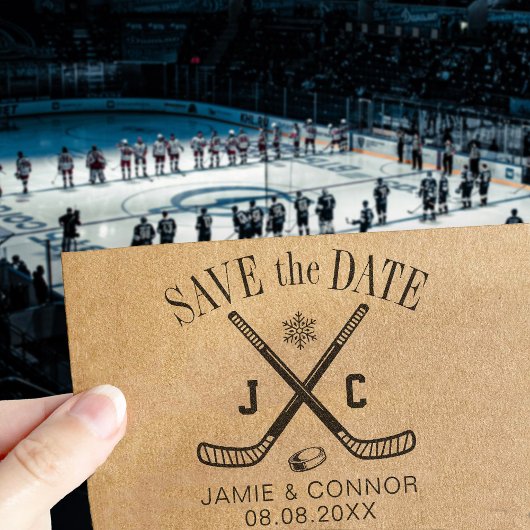 SAVE the DATE
J C
JAMIE & CONNOR
08.08.20XX